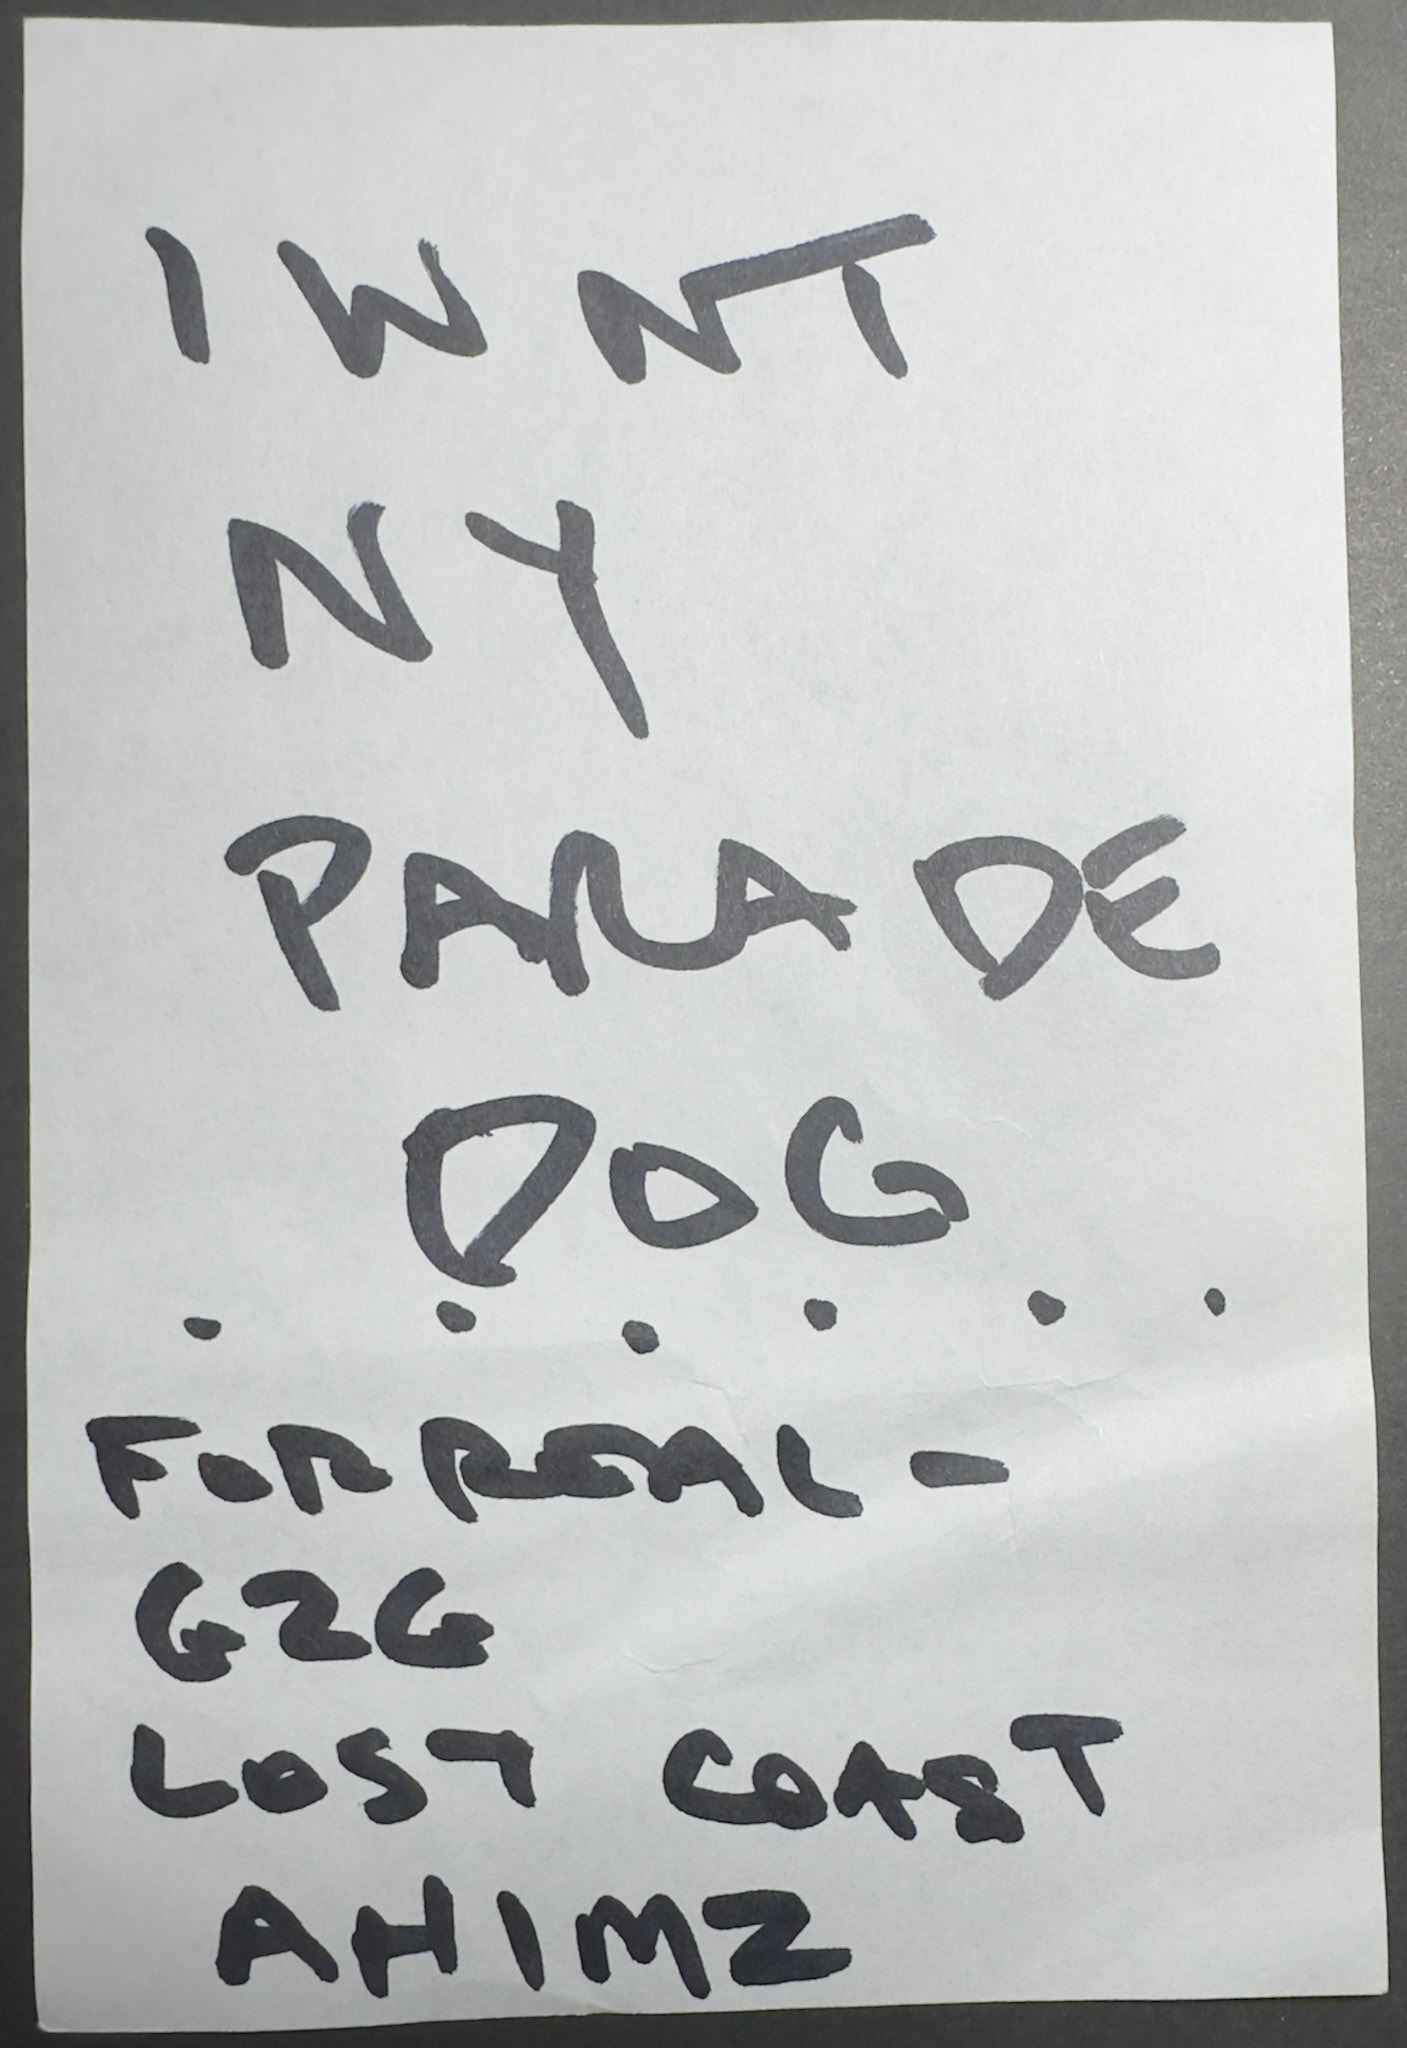 I W NT
NY
PARADE
DOG
. . . . . .
FOR REAL -
G2G
LOST COAST
AHIMZ